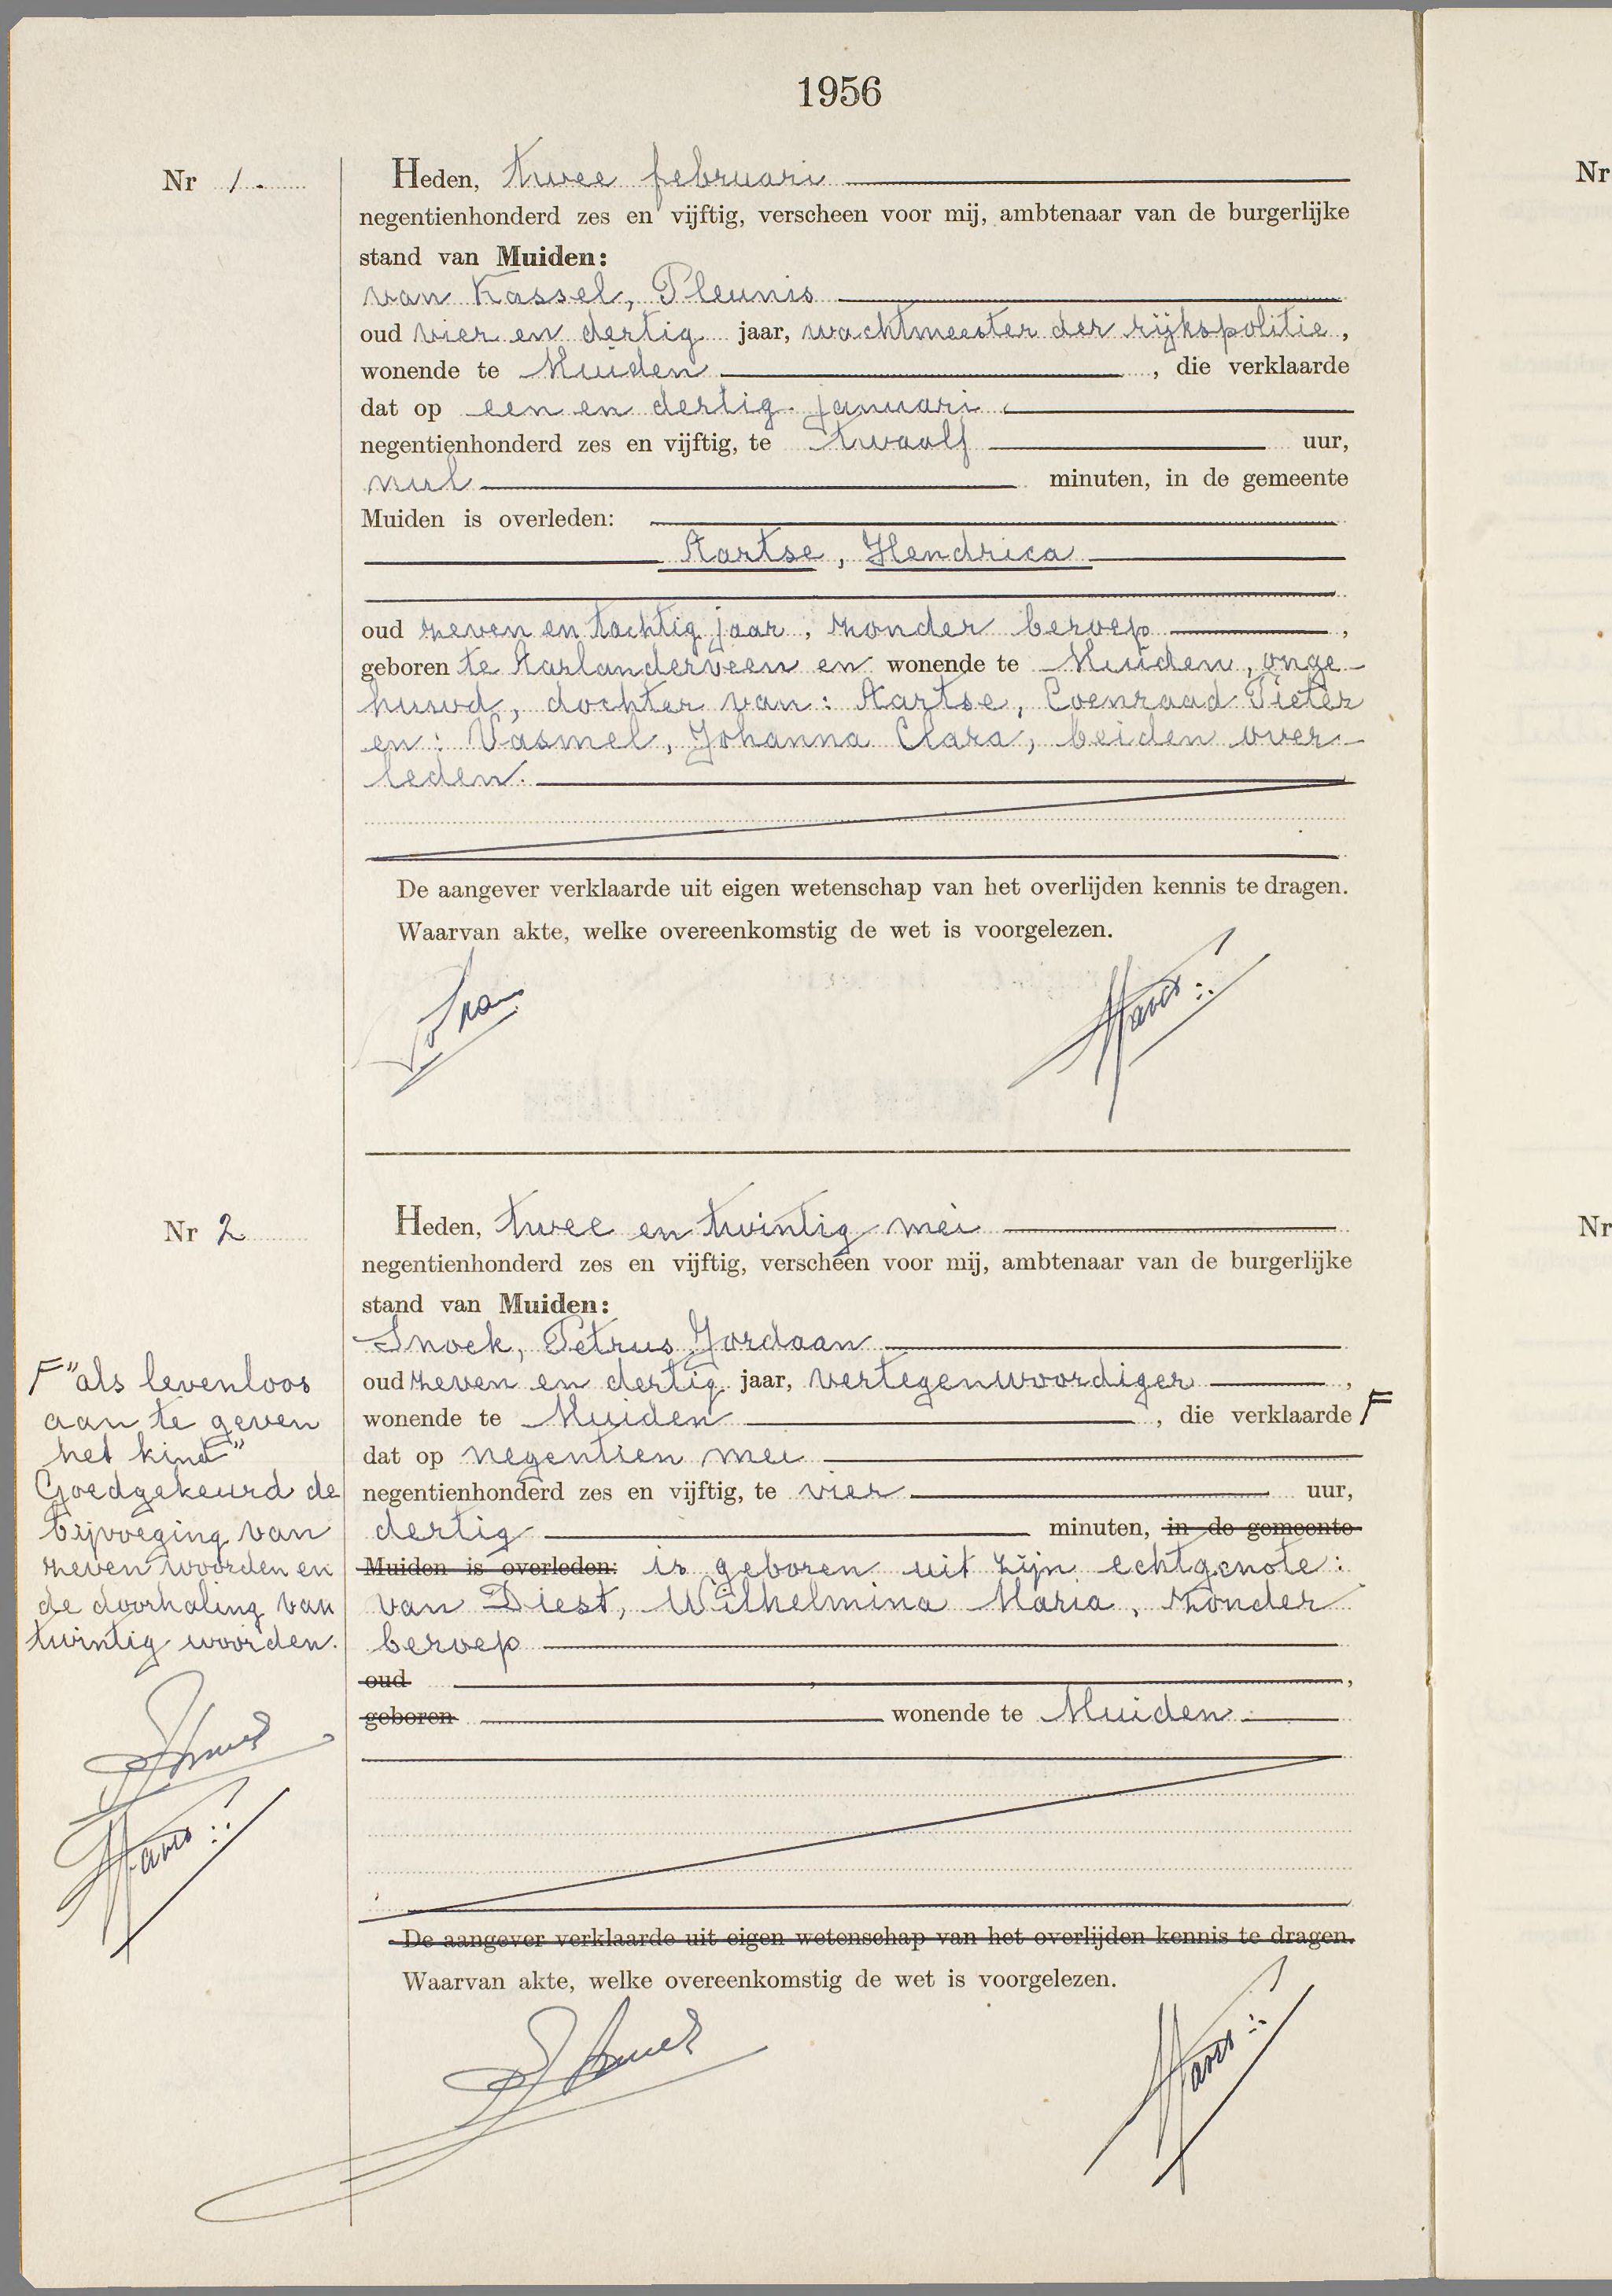 1956
Nr 1.
Heden, twee februari
negentienhonderd zes en vijftig, verscheen voor mij, ambtenaar van de burgerlijke
stand van Muiden:
van Kassel, Pleunis
oud vier en dertig jaar, wachtmeester der rijkspolitie,
wonende te Muiden, die verklaarde
dat op een en dertig januari
negentienhonderd zes en vijftig, te twaalf uur,
nul minuten, in de gemeente
Muiden is overleden:
Aartse, Hendrica
oud zeven en tachtig jaar, zonder beroep,
geboren te Aarlanderveen en wonende te Muiden, onge-
huwd, dochter van: Aartse, Coenraad Pieter
en: Vasmel, Johanna Clara, beiden over-
leden.
De aangever verklaarde uit eigen wetenschap van het overlijden kennis te dragen.
Waarvan akte, welke overeenkomstig de wet is voorgelezen.
Nr 2
Heden, twee en twintig mei
negentienhonderd zes en vijftig, verscheen voor mij, ambtenaar van de burgerlijke
stand van Muiden:
Snoek, Petrus Jordaan
oud zeven en dertig jaar, vertegenwoordiger,
wonende te Muiden, die verklaarde F
dat op negentien mei
negentienhonderd zes en vijftig, te vier uur,
dertig minuten, in de gemeente
Muiden is overleden: is geboren uit zijn echtgenote:
van Diest, Wilhelmina Maria, zonder
beroep
oud , ,
geboren wonende te Muiden
De aangever verklaarde uit eigen wetenschap van het overlijden kennis te dragen.
Waarvan akte, welke overeenkomstig de wet is voorgelezen.
F "als levenloos
aan te geven
het kind"
Goedgekeurd de
bijvoeging van
zeven woorden en
de doorhaling van
twintig woorden.
Nr
Nr